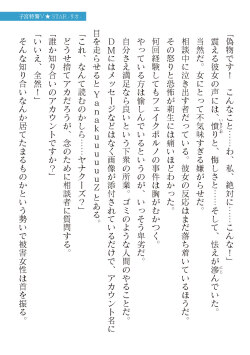 子宮特捜♥★STAR☆リオ
「偽物です！　こんなこと……わ、私、絶対に……こんな！」
震える彼女の声には、憤りと、悔しさと……そして、怯えが滲んでいた。
当然だ。女にとって不気味すぎる嫌がらせだ。
相談中に泣き出す者だっている。彼女の反応はまだ落ち着いているほうだ。
その怒りと恐怖が莉生には痛いほどわかった。
何回経験してもフェイクポルノの事件は胸がむかつく。
やっている方は愉しんでいるというのが、いっそう卑劣だ。
自分さえ満足なら良いという下衆の所業。ゴミのような人間のやることだ。
DMにはメッセージなどはなく画像が添付されているだけで、アカウント名に
目を走らせるとYanakuuuuuZとある。
「これ、なんて読むのかしら……ヤナクーズ？」
どうせ捨てアカだろうが、念のために相談者に質問する。
「誰か知り合いのアカウントですか？」
「いいえ、全然！」
そんな知り合いなんか居てたまるものかという勢いで被害女性は首を振る。